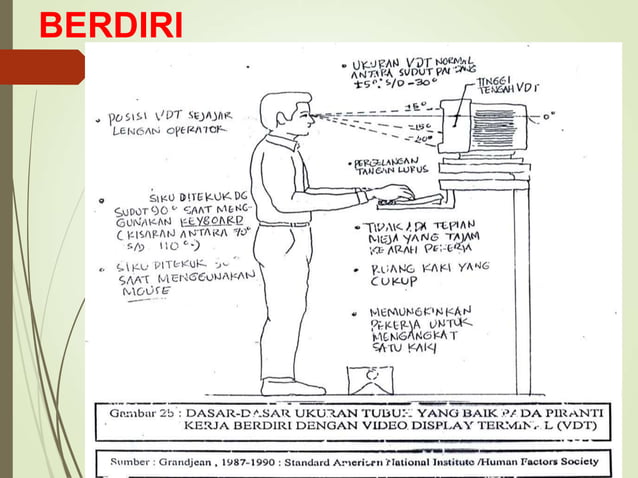 BERDIRI
• UKURAN VDT NORMAL
ANTARA SUDUT PANDANG
±5° S/D -30°
TINGGI
TENGAH VDT
• POSISI VDT SEJAJAR
LENGAN OPERATOR
±5°
0°
-15°
• PERGELANGAN
TANGAN LURUS
• SIKU DITEKUK DG
SUDUT 90° SAAT MENG-
GUNAKAN KEYBOARD
(KISARAN ANTARA 70°
S/D 110°)
• SIKU DITEKUK
SAAT MENGGUNAKAN
MOUSE
• TIDAK ADA TEPIAN
MEJA YANG TAJAM
KEARAH PEKERJA
• RUANG KAKI YANG
CUKUP
• MEMUNGKINKAN
PEKERJA UNTUK
MENGANGKAT
SATU KAKI
Gambar 2b : DASAR-DASAR UKURAN TUBUH YANG BAIK PADA PIRANTI
KERJA BERDIRI DENGAN VIDEO DISPLAY TERMINAL (VDT)
Sumber : Grandjean , 1987-1990 : Standard American National Institute /Human Factors Society